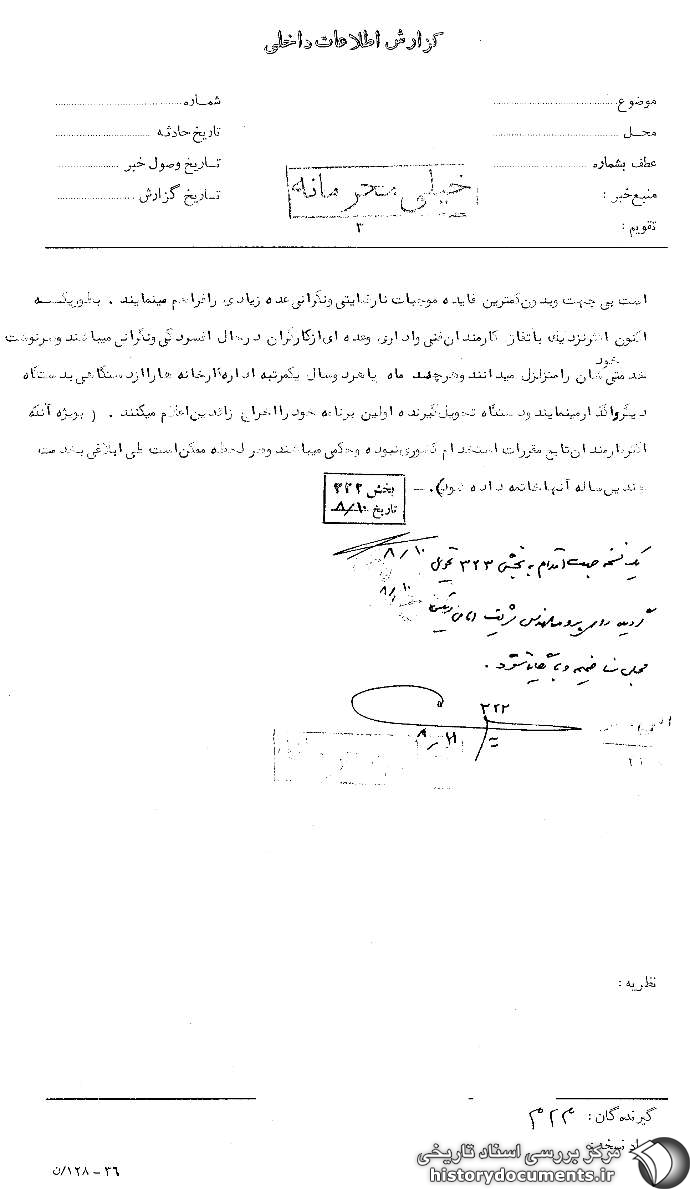 گزارش اطلاعات داخلی
موضوع
شماره
محل
تاریخ حادثه
عطف بشماره
تاریخ وصول خبر
منبع خبر :
تاریخ گزارش
تقویم :
خیلی محرمانه
۳
است بی جهت وبدون کمترین فایده موجبات نارضایتی ونگرانی عده زیادی رافراهم مینمایند . بطوریکه
اکنون اکثرنزدیک باتفاق کارمندان فنی واداری وعده ای ازکارگران درحال افسردگی ونگرانی میباشند وسرنوشت
خود
خدمتی شان رامتزلزل میدانند وهرچند ماه یاهردوسال یکمرتبه اداره کارخانه هاراازدستگاهی بدستگاه
دیگرواگذارمینمایند ودستگاه تحویل گیرنده اولین برنامه خودرااخراج زائدین اعلام میکنند . ( بویژه آنکه
اکثرکارمندان تابع مقررات استخدام کشوری نبوده وحکمی میباشند وهر لحظه ممکن است طی ابلاغی بخدمت
چندین ساله آنها خاتمه داده شود) .–
بخش ۳۲۲
تاریخ ۸/۱۰
یک نسخه جهت اقدام به بخش ۳۲۳ تحویل ۸/۱۰
گردید
۸/۱۰
۳۲۲
۸/۱۱
نظریه :
گیرندگان : ۳۲۴
تعداد نسخه :
۳۶ – ۱۲۸/ن
مرکز بررسی اسناد تاریخی
historydocuments.ir